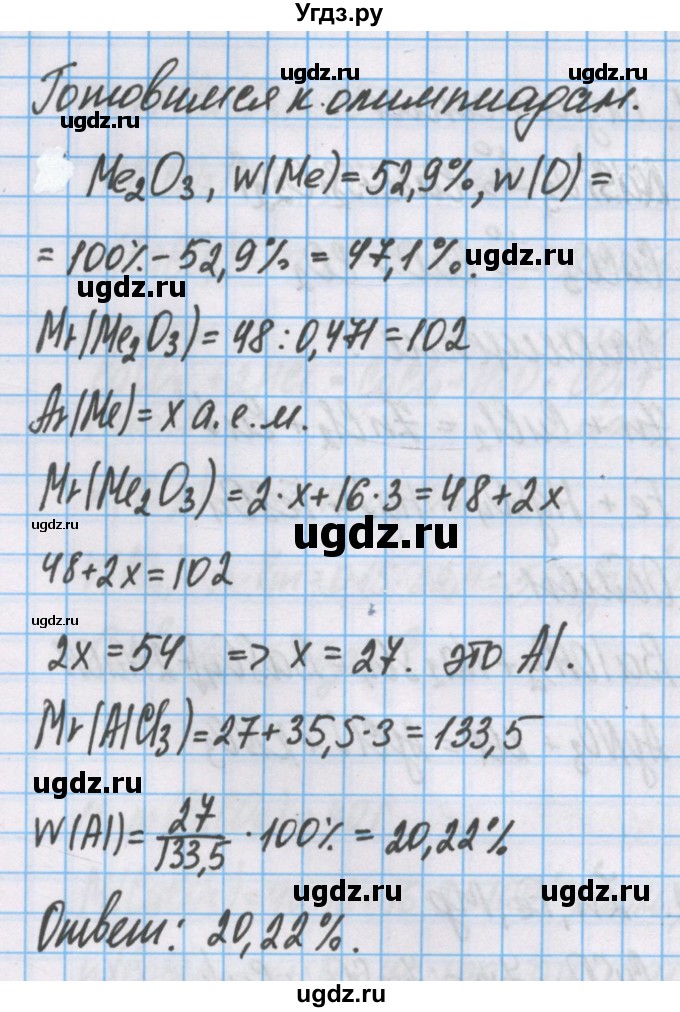 Угдз.ру
ugdz.ru
Готовимся к олимпиадам.
ugdz.ru ugdz.ru
Me₂O₃, W(Me)=52,9%, W(O)=
=100%-52,9% = 47,1%.
ugdz.ru ugdz.ru
Mr(Me₂O₃)=48:0,471=102
Ar(Me)=x а.е.м.
Mr(Me₂O₃)=2·x+16·3=48+2x
ugdz.ru ugdz.ru
48+2x=102
ugdz.ru
2x=54 => x=27. это Al.
Mr(AlCl₃)=27+35,5·3=133,5
ugdz.ru
W(Al)=27/133,5·100% = 20,22%
ugdz.ru ugdz.ru
Ответ: 20,22%.
ugdz.ru